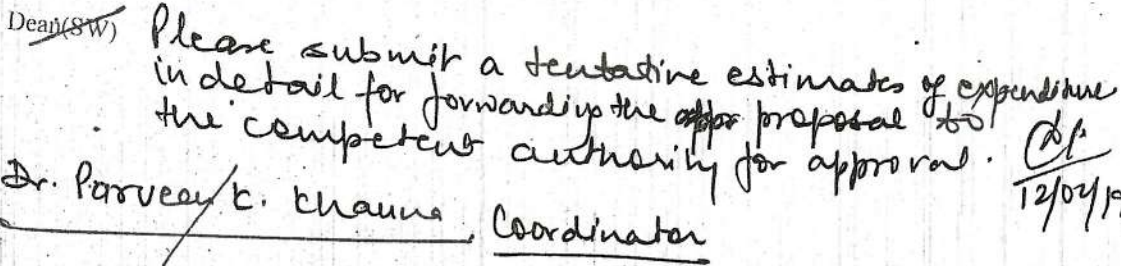 Dean(SW)
Please submit a tentative estimates of expenditure
in detail for forwarding the appr proposal to
the competent authority for approval.
12/04/19
Dr. Parveen K. Khanna, Coordinator